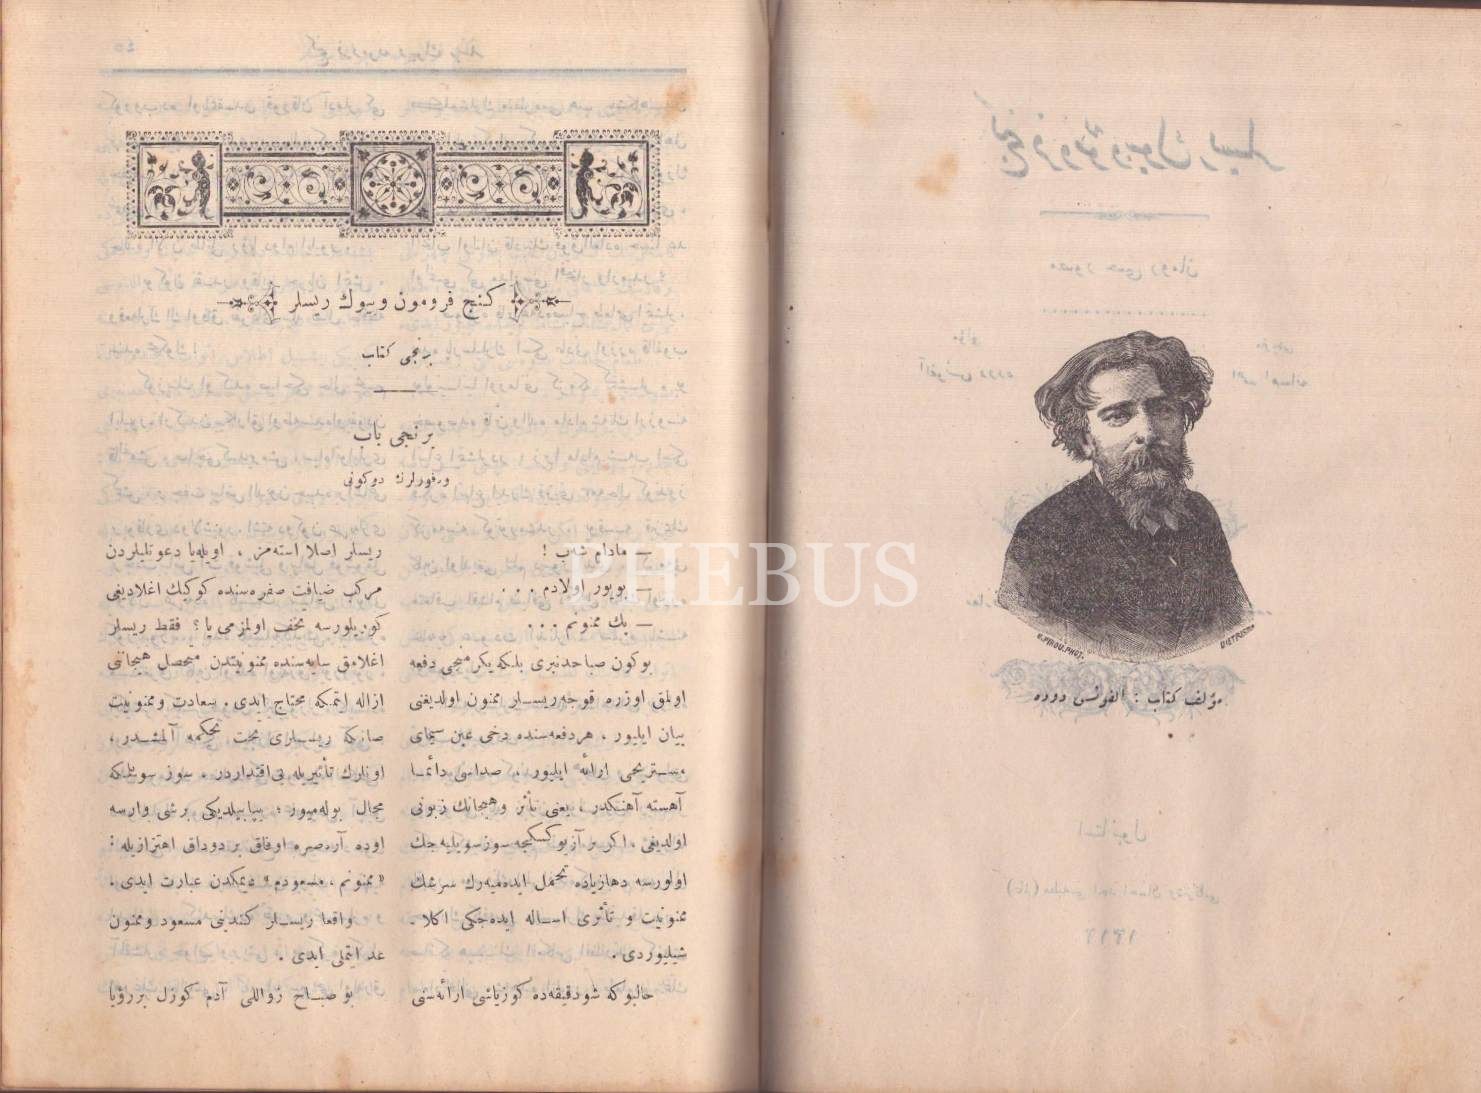 مؤلف كتاب : الفونس دوده
E. PIROU. PHOT.
كنج فرومون و بيوك ريسلر
برنجی كتاب
برنجی باب
وه‌فورلرك دوكونی
— مادام شب !
— بويور اولادم . . .
— پك ممنونم . . .
بوكون صباحدنبری بلكه يكرمنجی دفعه
اولمق اوزره قوجه ريسلر ممنون اولديغنی
بيان ايليور ، هر دفعه‌سنده دخی عين سيمای
مستريحی ارائه ايليور . صداسی دائما
آهسته آهنكدر ، يعنی تأثر وهيجانك زبونی
اولديغی ، اكر بر آز يوكسكجه سوز سويليه‌جك
اولورسه دها زياده تحمل ايده‌ميه‌رك سرشك
ممنونيت و تأثری اساله ايده‌جكی اكلا .
شيليوردی .
حالبوكه شو دقيقه‌ده كوزياشی ارائه‌سنی
ريسلر اصلا استه‌مز ، اويله يا دعوتليلردن
مركب ضيافت صفره‌سنده كوكيك اغلاديغی
كوريلورسه تحف اولمزمی يا؟ فقط ريسلر
اغلامق سايه‌سنده ممنونيتدن متحصل هيجاننی
ازاله ايتمكه محتاج ايدی . سعادت وممنونيت
صانكه ريسلری تحت تحكمه آلمشدر ،
اونلرك تأثيريله بی‌اقتداردر . سوز سويلمكه
مجال بوله‌ميور ؛ يپابيلديكی برشی وارسه
اوده آره‌صره اوفاق بر دوداق اهتزازيله :
« ممنونم ، مسعودم » ديمكدن عبارت ايدی .
واقعا ريسلر كندينی مسعود وممنون
عد ايتملی ايدی .
بو صباح زواللی آدم كوزل بر رؤيا
PHEBUS